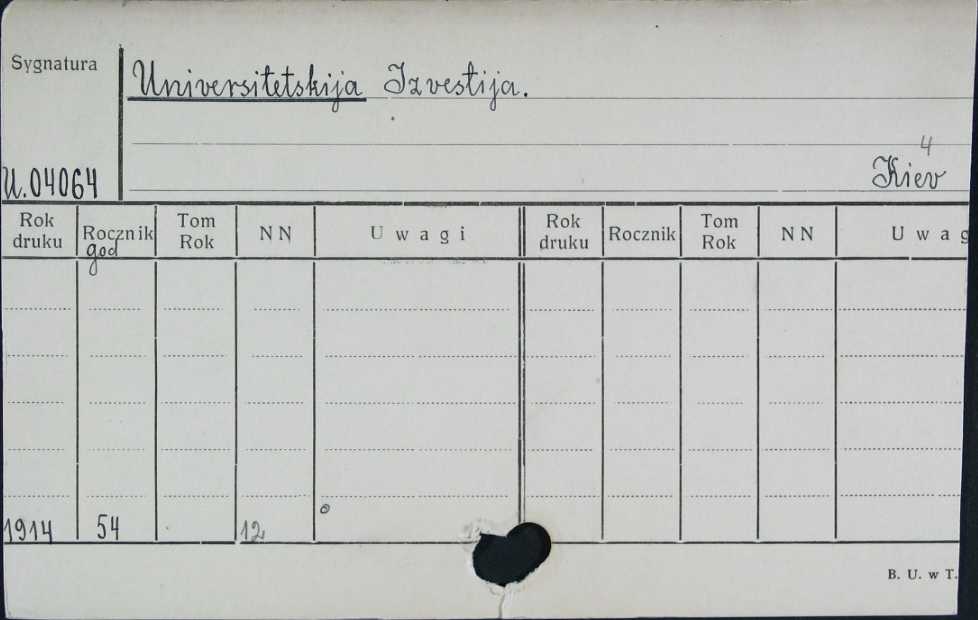 Sygnatura
Universitetskija Izvestija.
4
U.04064
Kiev
Rok druku Rocznik Tom Rok NN Uwagi Rok druku Rocznik Tom Rok NN Uwag
god
1914 54 12
B. U. w T.